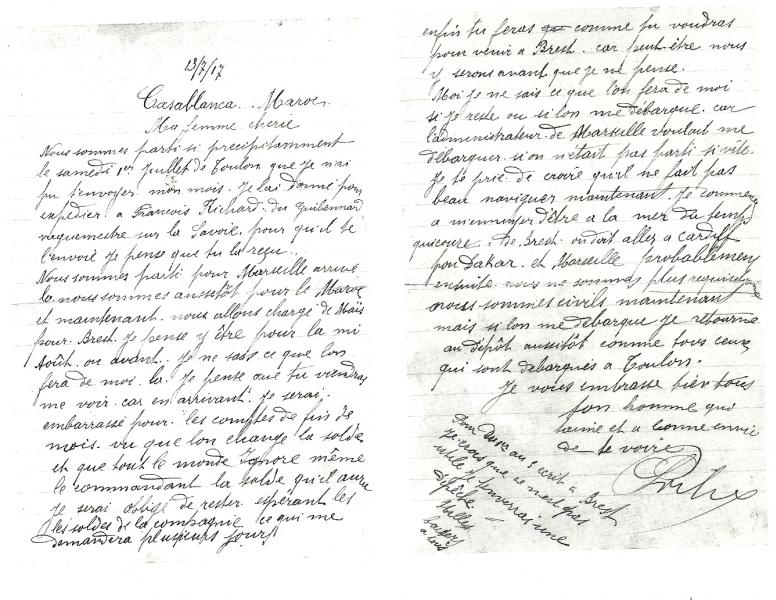 13/7/17
Casablanca. Maroc.
Ma femme cherie
Nous sommes parti si precipitamment
le samedi 1er Juillet de Toulon que je n'ai
pu t'envoyer mon mois. Je l'ai donné pour
expedier a François Richard. du Guibennard
vaguemestre sur la Savoie. pour qu'il te
l'envoie je pense que tu la reçu..
Nous sommes parti pour Marseille arrivé
la nous sommes aussitôt pour le Maroc
et maintenant. nous allons chargé de Maïs
pour. Brest. Je pense y être pour la mi
Août. ou avant. Je ne sais ce que lon
fera de moi. la. Je pense que tu viendras
me voir. car en arrivant. Je serai
embarrassé pour. les comptes de fin de
mois. vu que lon change la solde
et que tout le monde ignore même
le commandant la solde qu'il aura
Je serai obligé de rester. espérant les
les soldes de la compagnie ce qui me
demandera plusieurs jours!
enfin tu feras comme tu voudras
pour venir a Brest. car peut-être nous
y serons avant que je ne pense.
Moi je ne sais ce que lon fera de moi
si je reste ou si lon me débarque. car
l'administrateur de Marseille voulait me
débarquer si on n'était pas parti si vite.
Je te prie de croire qu'il ne fait pas
beau naviguer maintenant. Je commence
a m'ennuyer d'être a la mer du temps
qui coure. De Brest. on doit allez a Cardiff
pour Dakar. et Marseille probablement
ensuite nous ne sommes plus requisitionné
nous sommes civils maintenant
mais si lon me debarque je retourne
au dépôt aussitôt comme tous ceux
qui sont debarqués a Toulon.
Je vous embrasse bien tous
ton homme qui
taime et a bonne envie
de te voire
au ecrit a Brest
je crois que ce n'est pas
utile je t'enverrai une
depêche
Milles
baisers
a tous